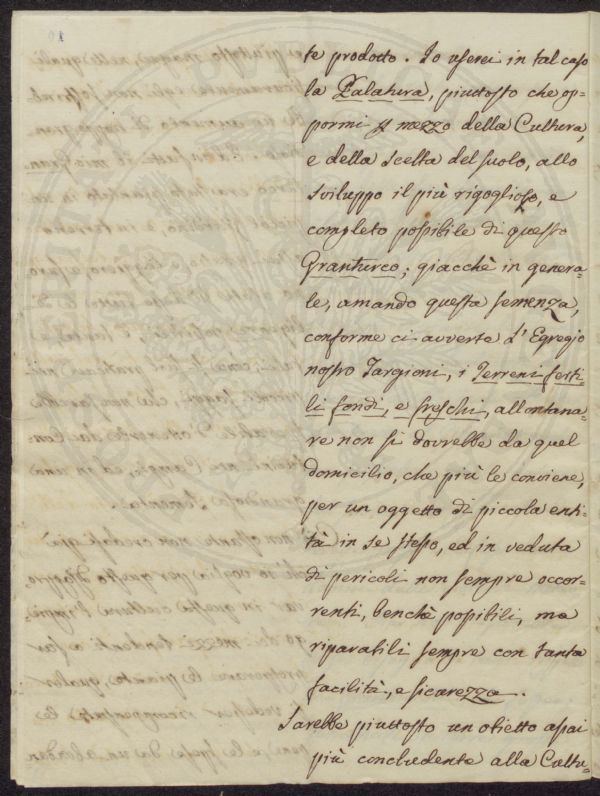 te prodotto. Io userei in tal caso
la Palatura, piuttosto che op-
pormi p mezzo della Cultura,
e della scelta del suolo, allo
sviluppo il più rigoglioso, e
completo possibile di questo
Granturco; giacchè in genera-
le, amando questa semenza,
conforme ci avverte l'Egregio
nostro Targioni, i Terreni ferti-
li fondi, e freschi, allontana-
re non si dovrebbe da quel
domicilio, che più le conviene,
per un oggetto di piccola enti-
tà in se stesso, ed in veduta
di pericoli non sempre occor-
renti, benchè possibili, ma
riparabili sempre con tanta
facilità, e sicurezza.
Sarebbe piuttosto un obietto assai
più concludente alla Cultu-